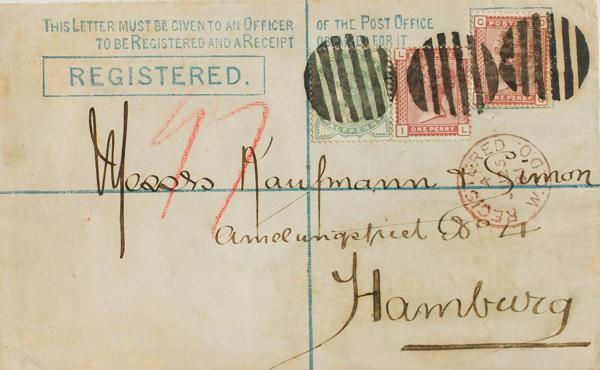 THIS LETTER MUST BE GIVEN TO AN OFFICER OF THE POST OFFICE
TO BE REGISTERED AND A RECEIPT FOR IT
REGISTERED.
HALFPENNY
I ONE PENNY L
POSTAGE
ONE PENNY
REGISTERED
Messrs Kaufmann & Simon
Amelungstreet
Hamburg